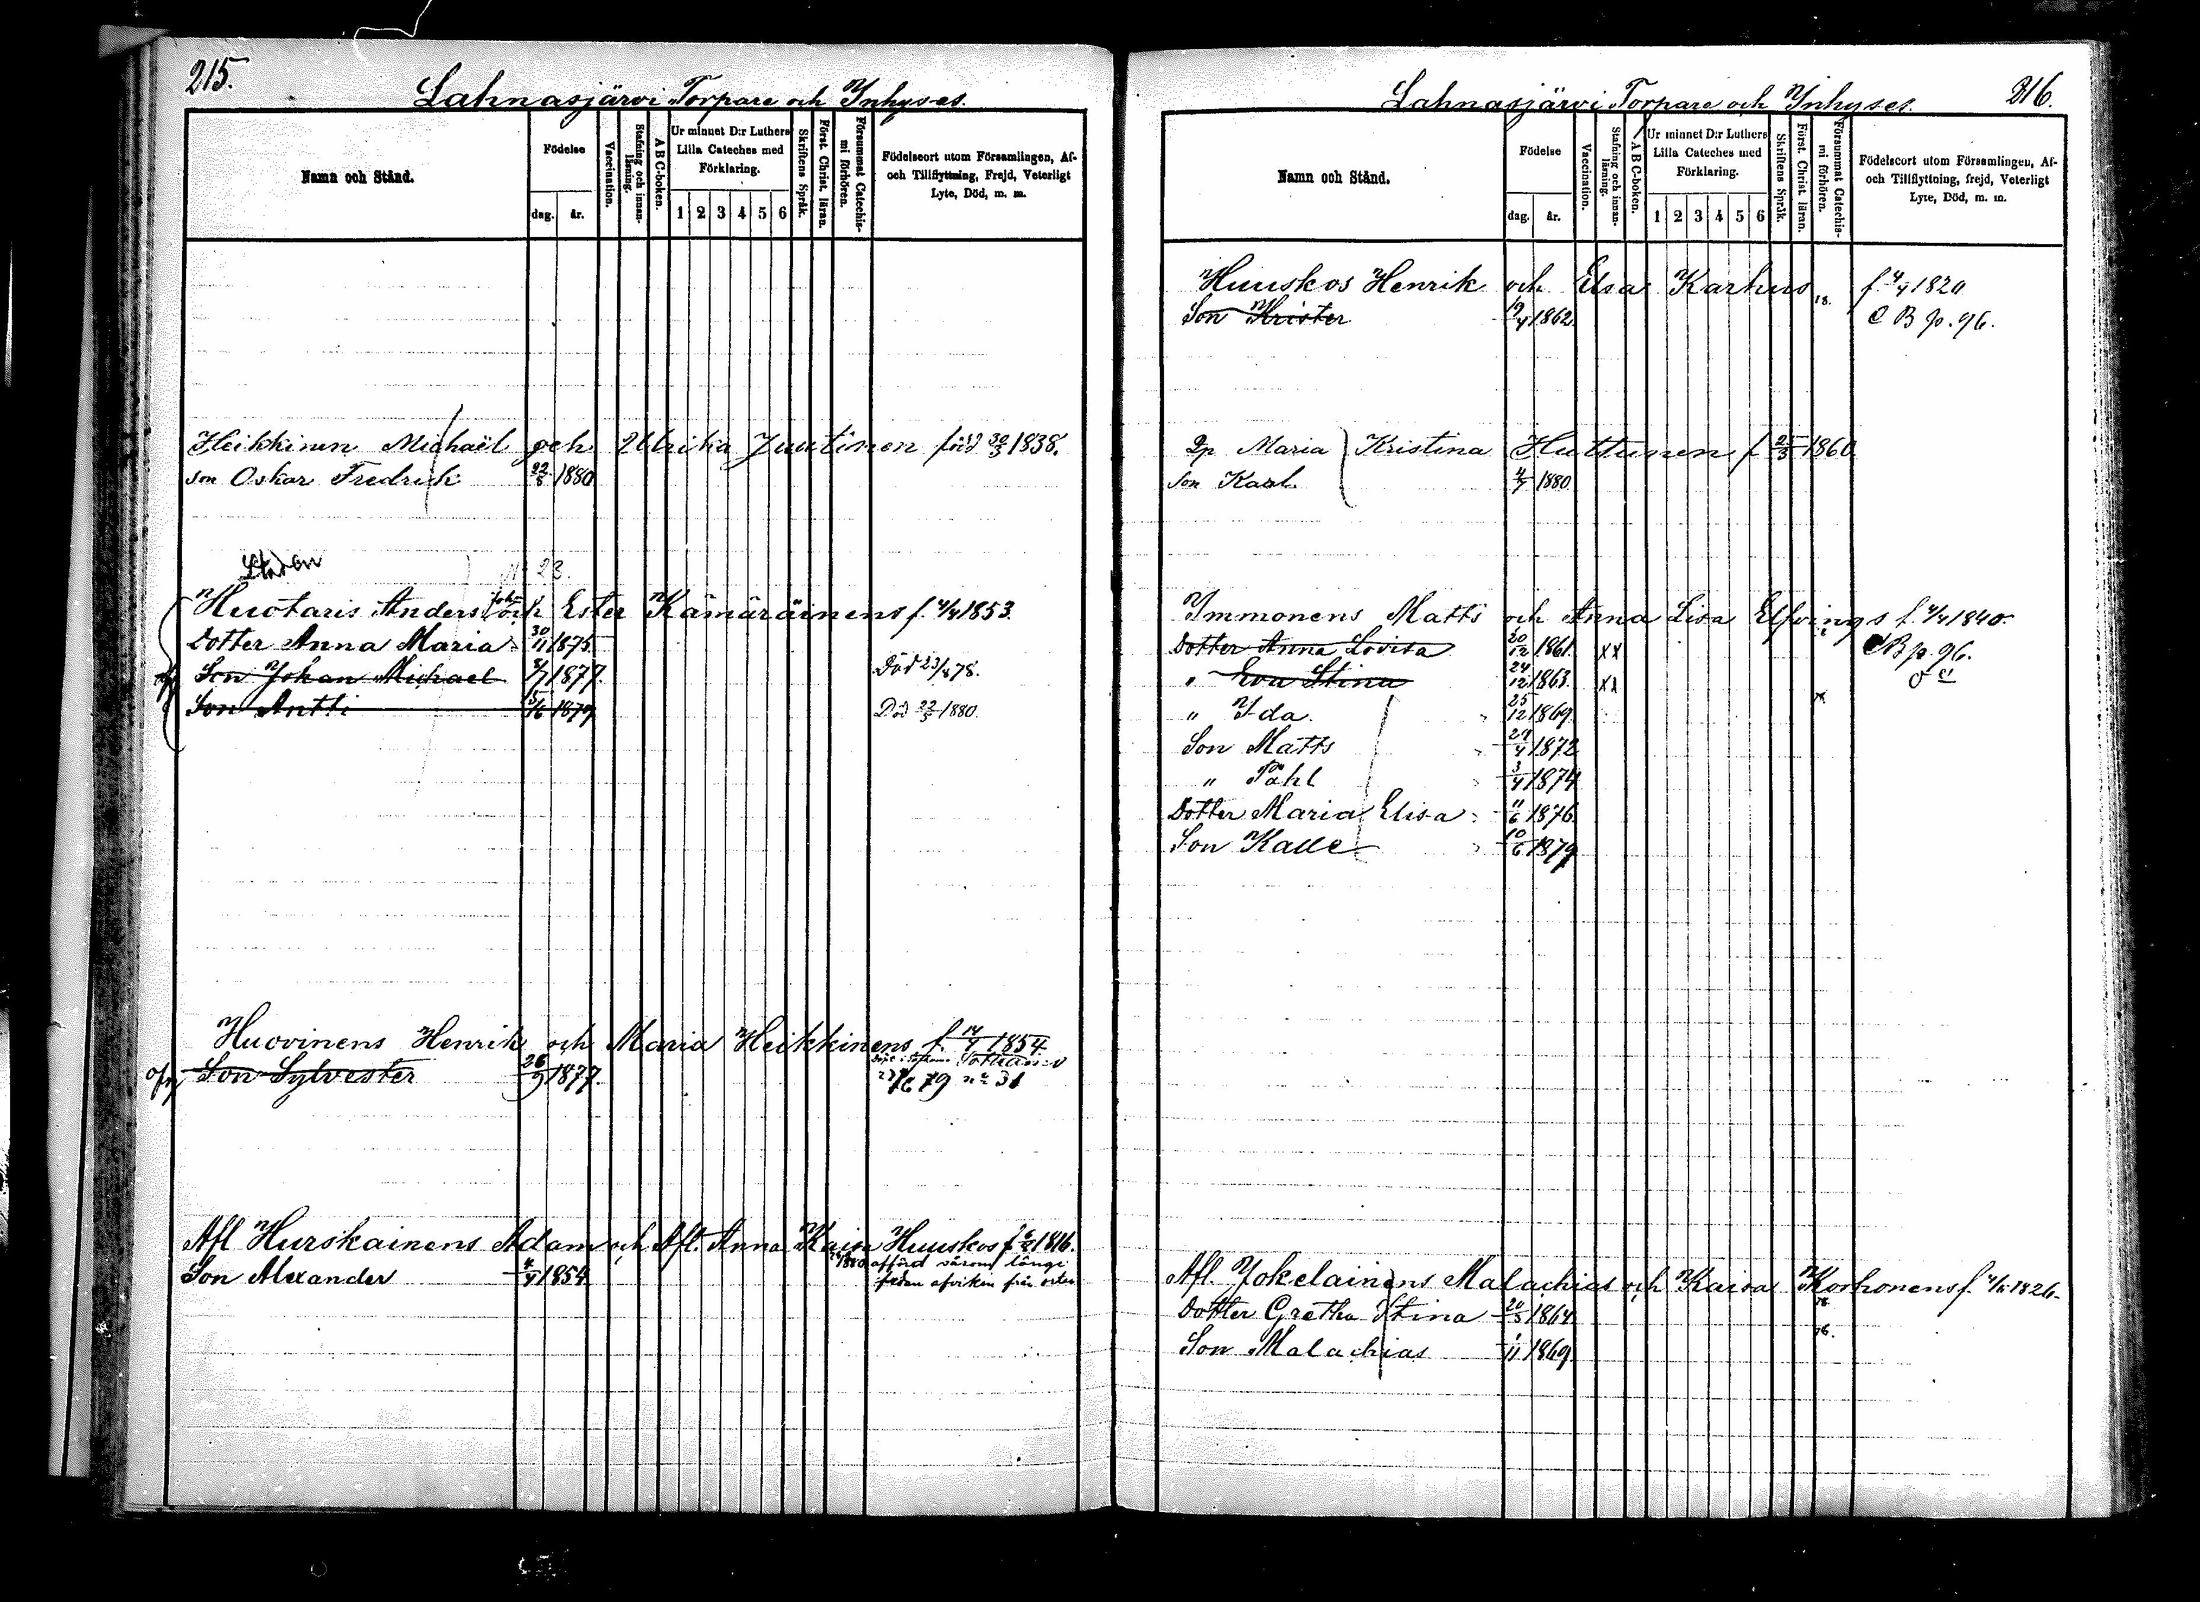 215.
Lahnasjärvi Torpare och Inhyses.
Namn och Stånd.
Födelse
dag.
år.
Vaccination.
Stafning och innan-läsning.
A B C-boken.
Ur minnet D:r Luthers
Lilla Cateches med
Förklaring.
1 2 3 4 5 6
Skriftens Språk.
Först. Christ. läran.
Försummat Catechis-mi förhören.
Födelseort utom Församlingen, Af-
och Tillflyttning, Frejd, Veterligt
Lyte, Död, m. m.
Heikkinen Michaël och Ulrika Juutinen född 30/3 1838.
son Oskar Fredrik 22/8 1880
Huotaris Anders Joh. och Ester Kämäräinens f. 4/4 1853.
Dotter Anna Maria 30/11 1875.
Son Johan Michael 2/7 1877. Död 23/4 78.
Son Antti 5/6 1879 Död 22/3 1880.
Huovinens Henrik och Maria Heikkinens f. 14/4 1854
Son Sylvester 26/9 1877. 79 no 31
Afl Hurskainens Adam och Afl. Anna Kaisa Huuskos f. 1816.
Son Alexander 4/4 1854 1880 afförd såsom länge
sedan afviken från orten
216.
Lahnasjärvi Torpare och Inhyses.
Namn och Stånd.
Födelse
dag.
år.
Vaccination.
Stafning och innan-läsning.
A B C-boken.
Ur minnet D:r Luthers
Lilla Cateches med
Förklaring.
1 2 3 4 5 6
Skriftens Språk.
Först. Christ. läran.
Försummat Catechis-mi förhören.
Födelseort utom Församlingen, Af-
och Tillflyttning, frejd, Veterligt
Lyte, Död, m. m.
Huuskos Henrik och Elsa Karhus f. 4/4 1820
Son Krister 19/4 1862 C B p. 96.
Qp Maria Kristina Huttunen f 25/3 1860
Son Karl 4/7 1880
Immonens Matts och Anna Lisa Elfvings f. 4/4 1840.
Dotter Anna Lovisa 20/12 1861. xx C B p. 96.
" Eva Stina 24/12 1863. xx
" Ida. 25/12 1869.
Son Matts 27/4 1872
" Påhl 3/4 1874
Dotter Maria Elisa 11/6 1876
Son Kalle 10/6 1879
Afl. Jokelainens Malachias och Kaisa Korhonens f. 1826.
Dotter Gretha Stina 20/5 1864
Son Malachias 1/11 1869.